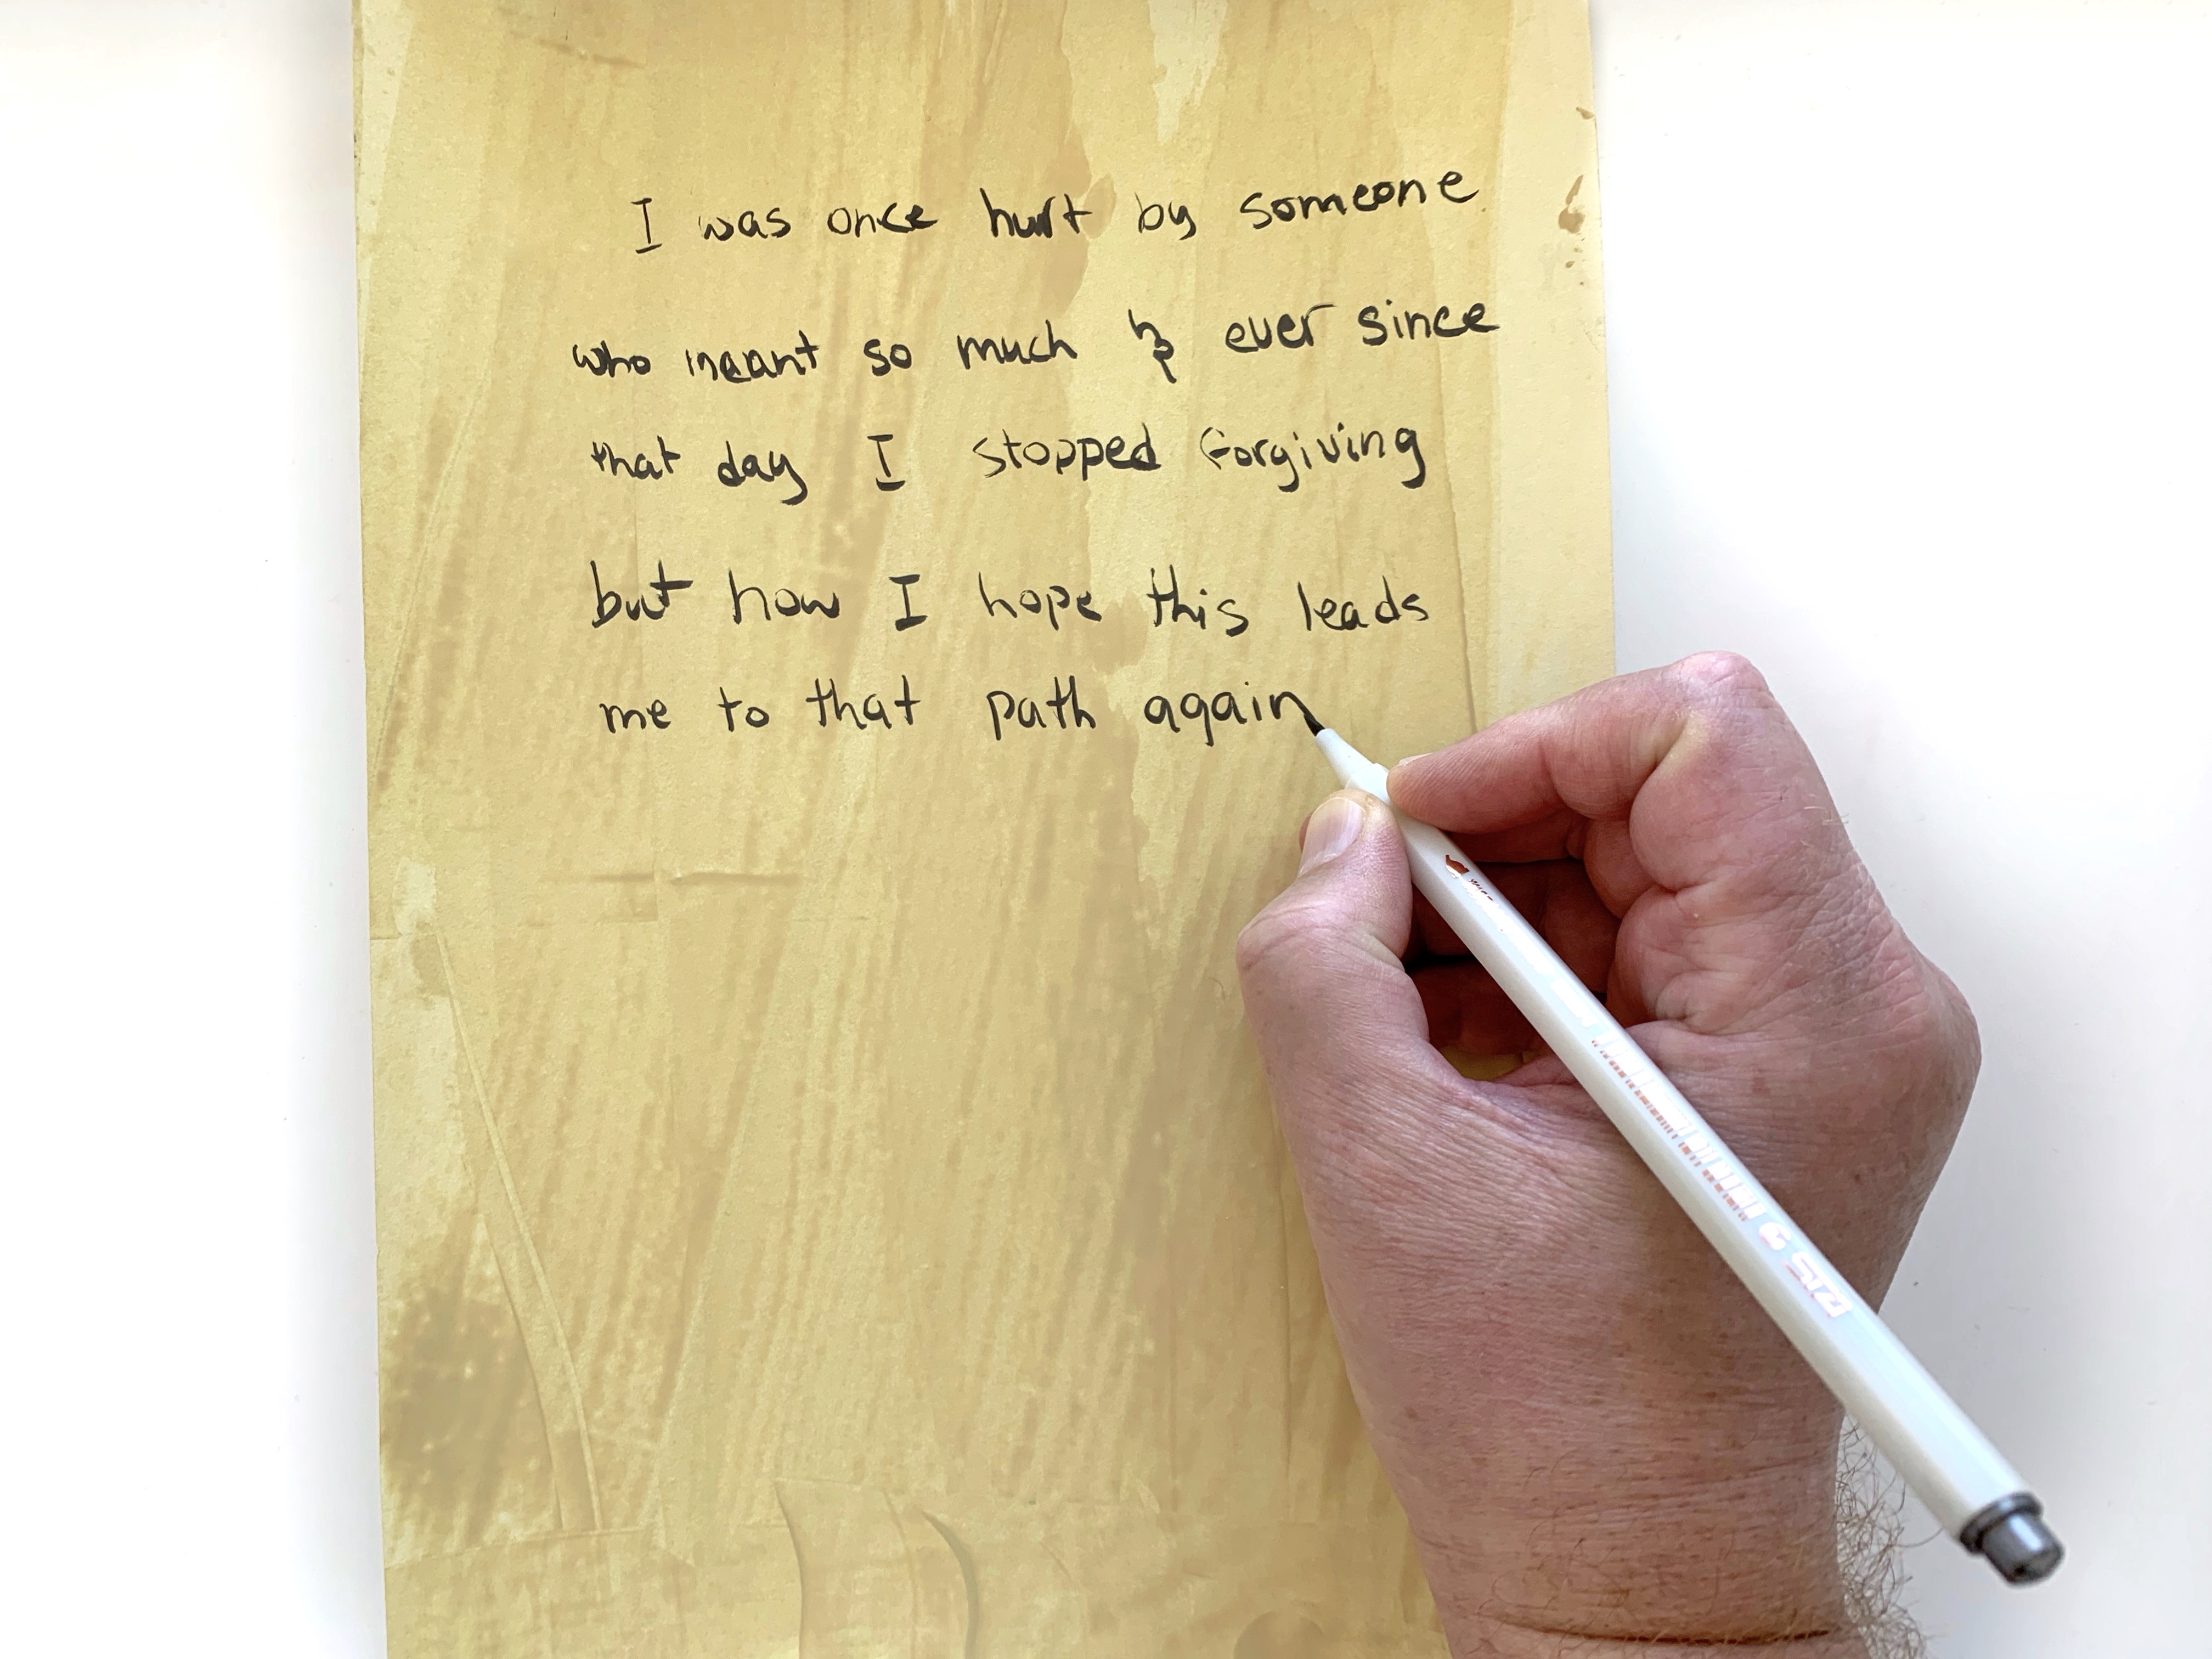 I was once hurt by someone
who meant so much & ever since
that day I stopped forgiving
but how I hope this leads
me to that path again